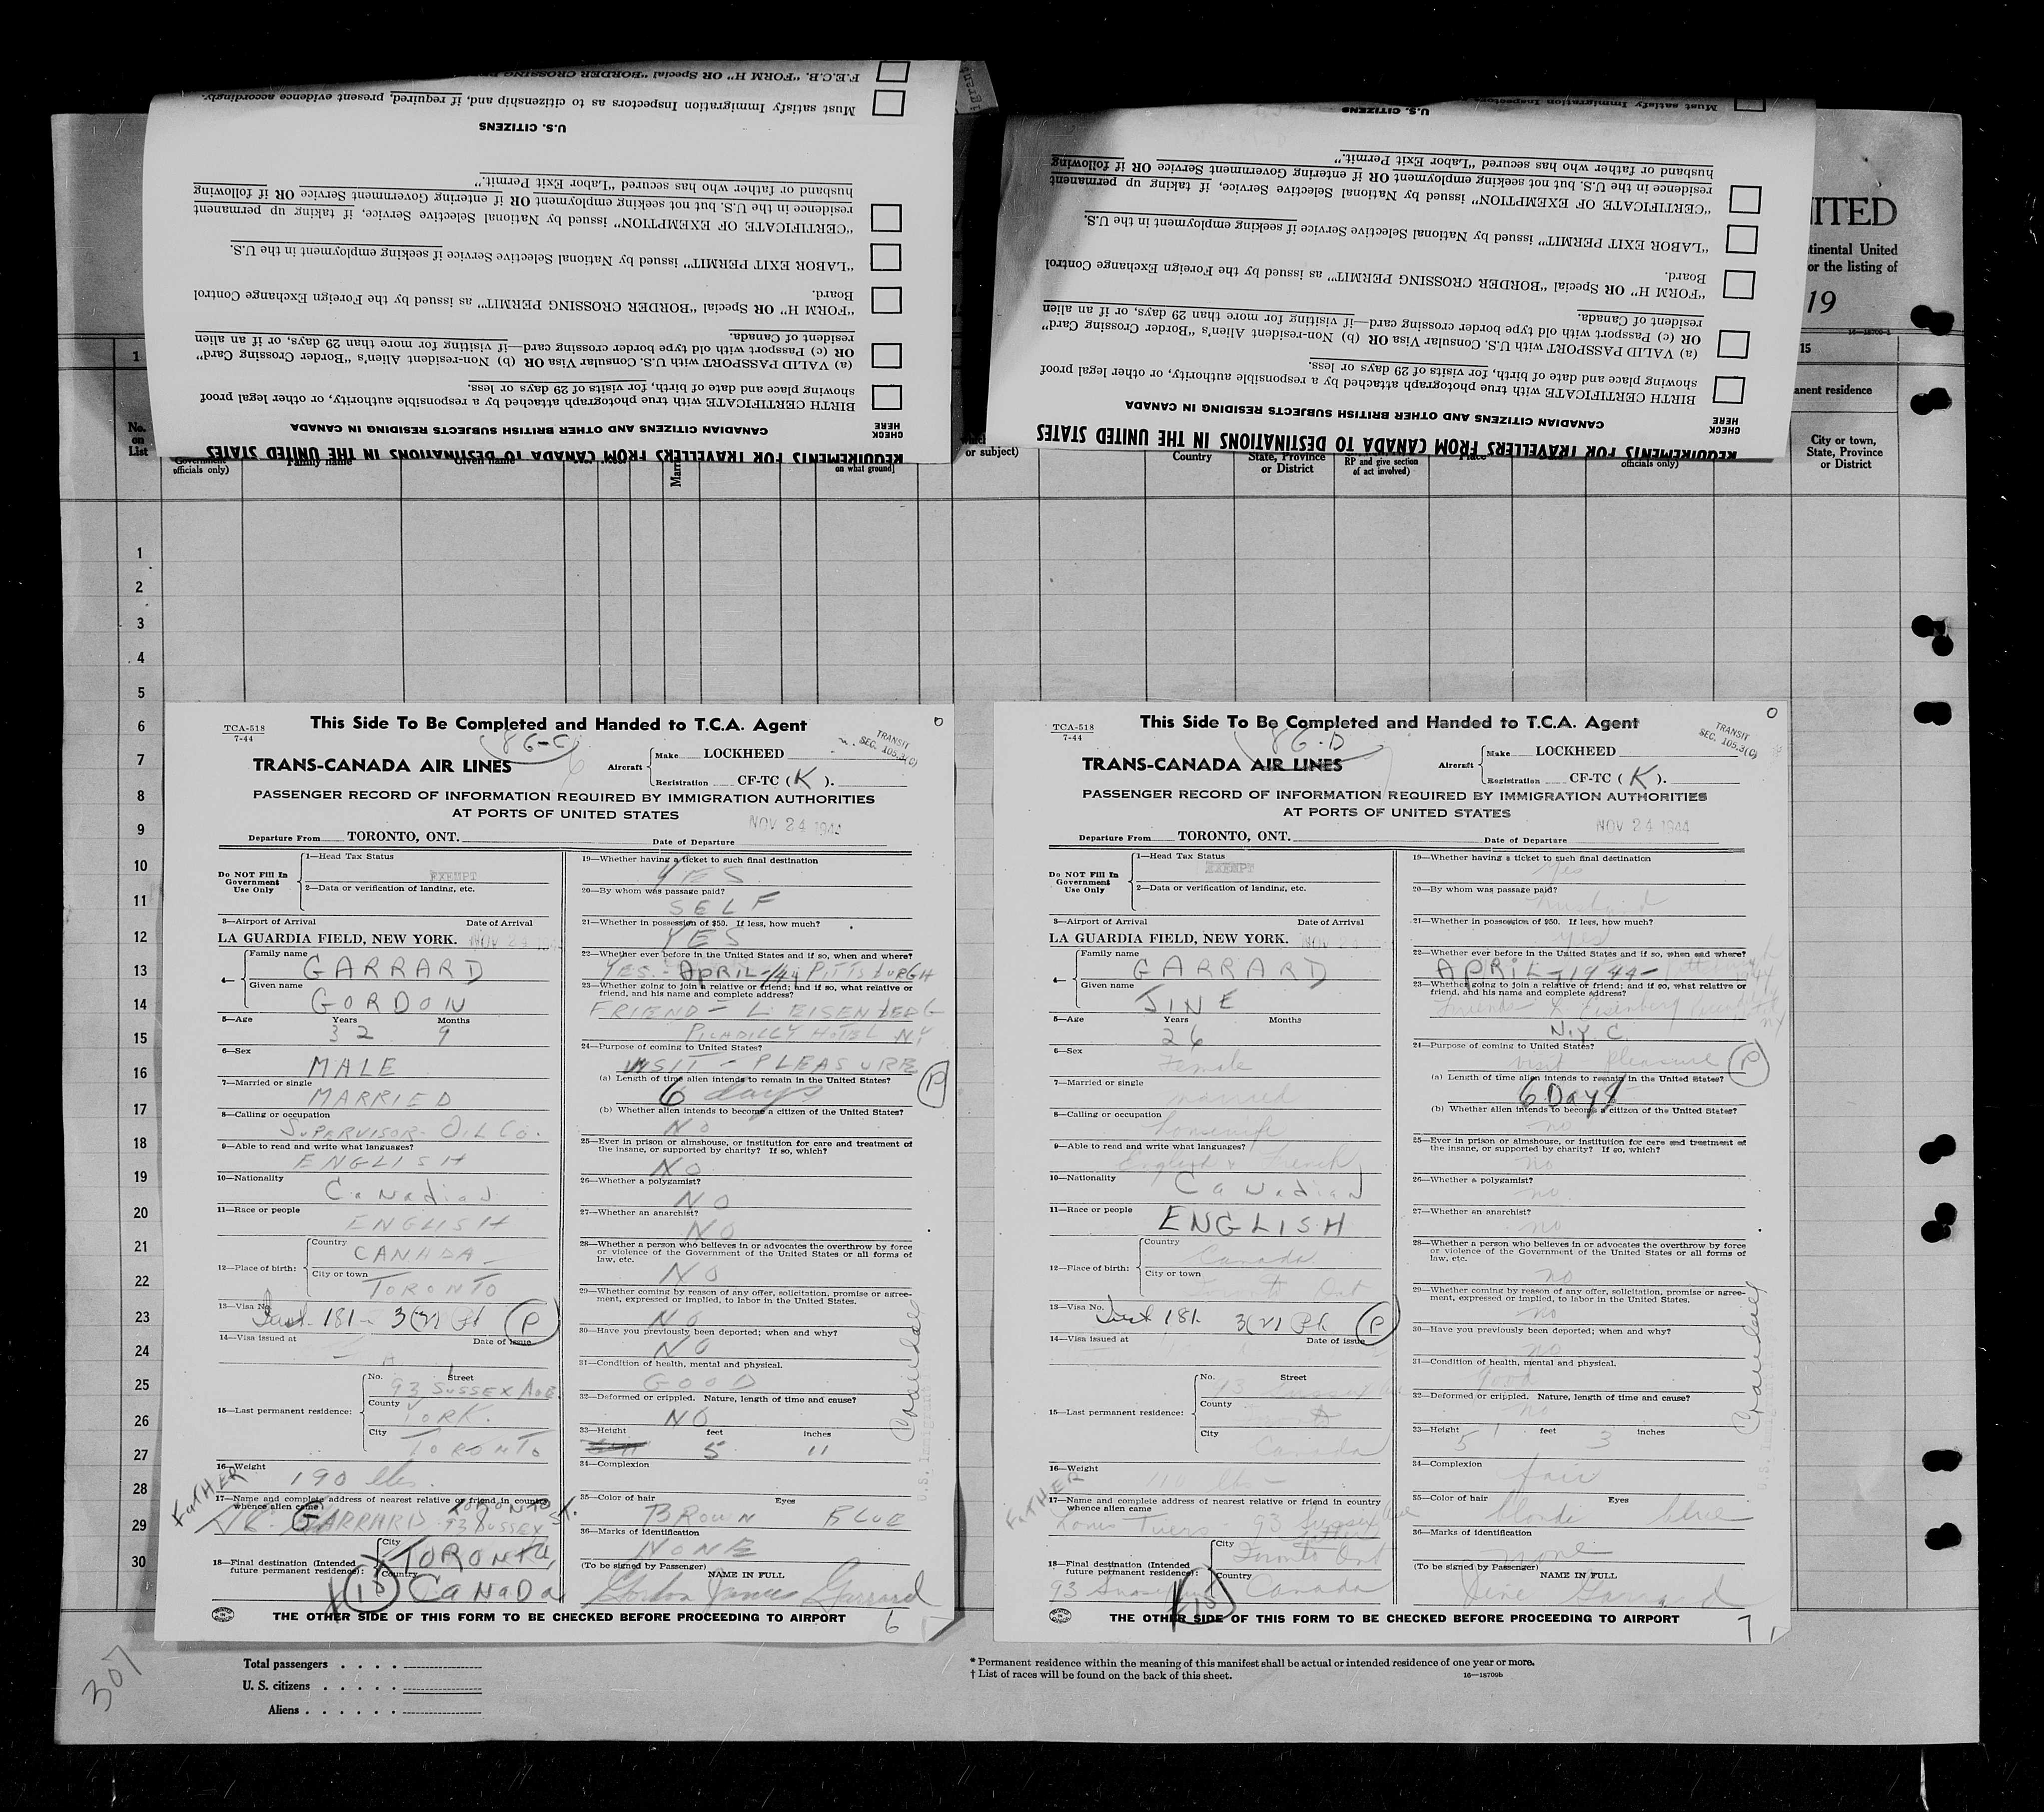 F.E.C.B. "FORM H" OR Special "BORDER CROSSING
Must satisfy Immigration Inspectors as to citizenship and, if required, present evidence accordingly.
U.S. CITIZENS
"CERTIFICATE OF EXEMPTION" issued by National Selective Service, if taking up permanent
residence in the U.S. but not seeking employment OR if entering Government Service OR if following
husband or father who has secured "Labor Exit Permit."
"LABOR EXIT PERMIT" issued by National Selective Service if seeking employment in the U.S.
"FORM H" OR Special "BORDER CROSSING PERMIT" as issued by the Foreign Exchange Control
Board.
(a) VALID PASSPORT with U.S. Consular Visa OR (b) Non-resident Alien's "Border Crossing Card"
OR (c) Passport with old type border crossing card—if visiting for more than 29 days, or if an alien
resident of Canada.
BIRTH CERTIFICATE with true photograph attached by a responsible authority, or other legal proof
showing place and date of birth, for visits of 29 days or less.
CHECK
HERE
CANADIAN CITIZENS AND OTHER BRITISH SUBJECTS RESIDING IN CANADA
REQUIREMENTS FOR TRAVELLERS FROM CANADA TO DESTINATIONS IN THE UNITED STATES
Must satisfy Immigration Inspectors
U.S. CITIZENS
"CERTIFICATE OF EXEMPTION" issued by National Selective Service, if taking up permanent
residence in the U.S. but not seeking employment OR if entering Government Service OR if following
husband or father who has secured "Labor Exit Permit."
"LABOR EXIT PERMIT" issued by National Selective Service if seeking employment in the U.S.
"FORM H" OR Special "BORDER CROSSING PERMIT" as issued by the Foreign Exchange Control
Board.
(a) VALID PASSPORT with U.S. Consular Visa OR (b) Non-resident Alien's "Border Crossing Card"
OR (c) Passport with old type border crossing card—if visiting for more than 29 days, or if an alien
resident of Canada.
BIRTH CERTIFICATE with true photograph attached by a responsible authority, or other legal proof
showing place and date of birth, for visits of 29 days or less.
CHECK
HERE
CANADIAN CITIZENS AND OTHER BRITISH SUBJECTS RESIDING IN CANADA
REQUIREMENTS FOR TRAVELLERS FROM CANADA TO DESTINATIONS IN THE UNITED STATES
ITED
tinental United
or the listing of
19
1
15
anent residence
No.
on
List
Government
officials only)
Family name
Given name
on what ground)
or subject)
Country
State, Province
or District
RP and give section
of act involved)
Place
officials only)
City or town,
State, Province
or District
1
2
3
4
5
6
7
8
9
10
11
12
13
14
15
16
17
18
19
20
21
22
23
24
25
26
27
28
29
30
TCA-518
7-44
This Side To Be Completed and Handed to T.C.A. Agent
86-C
TRANSIT
SEC. 105.3(C)
TRANS-CANADA AIR LINES
Aircraft
Make LOCKHEED
Registration CF-TC ( K ).
PASSENGER RECORD OF INFORMATION REQUIRED BY IMMIGRATION AUTHORITIES
AT PORTS OF UNITED STATES
NOV 24 1944
Departure From TORONTO, ONT. Date of Departure
Do NOT Fill In
Government
Use Only
1—Head Tax Status
EXEMPT
2—Data or verification of landing, etc.
3—Airport of Arrival Date of Arrival
LA GUARDIA FIELD, NEW YORK. NOV 24
4—
Family name
GARRARD
Given name
GORDON
5—Age Years Months
32 9
6—Sex
MALE
7—Married or single
MARRIED
8—Calling or occupation
SUPERVISOR - OIL CO.
9—Able to read and write what languages?
ENGLISH
10—Nationality
Canadian
11—Race or people
ENGLISH
12—Place of birth:
Country
CANADA
City or town
TORONTO
13—Visa No.
181 - 3(2) P
14—Visa issued at Date of issue
15—Last permanent residence:
No. Street
93 SUSSEX AVE.
County
YORK.
City
TORONTO
16—Weight
190 lbs.
FATHER
17—Name and complete address of nearest relative or friend in country
whence alien came
GARRARD 93 SUSSEX
TORONTO
18—Final destination (Intended
future permanent residence):
City
TORONTO,
Country
CANADA
19—Whether having a ticket to such final destination
YES
20—By whom was passage paid?
SELF
21—Whether in possession of $50. If less, how much?
YES
22—Whether ever before in the United States and if so, when and where?
YES - APRIL-/44 PITTSBURGH
23—Whether going to join a relative or friend; and if so, what relative or
friend, and his name and complete address?
FRIEND - L. EISENBERG
PICADILLY HOTEL NY
24—Purpose of coming to United States?
VISIT - PLEASURE
P
(a) Length of time alien intends to remain in the United States?
6 days
(b) Whether alien intends to become a citizen of the United States?
NO
25—Ever in prison or almshouse, or institution for care and treatment of
the insane, or supported by charity? If so, which?
NO
26—Whether a polygamist?
NO
27—Whether an anarchist?
NO
28—Whether a person who believes in or advocates the overthrow by force
or violence of the Government of the United States or all forms of
law, etc.
NO
29—Whether coming by reason of any offer, solicitation, promise or agree-
ment, expressed or implied, to labor in the United States.
NO
30—Have you previously been deported; when and why?
NO
31—Condition of health, mental and physical.
GOOD
32—Deformed or crippled. Nature, length of time and cause?
NO
33—Height feet inches
5 11
34—Complexion
35—Color of hair Eyes
BROWN BLUE
36—Marks of identification
NONE
(To be signed by Passenger) NAME IN FULL
Gordon James Garrard
THE OTHER SIDE OF THIS FORM TO BE CHECKED BEFORE PROCEEDING TO AIRPORT
6
TCA-518
7-44
This Side To Be Completed and Handed to T.C.A. Agent
86-D
TRANSIT
SEC. 105.3(C)
TRANS-CANADA AIR LINES
Aircraft
Make LOCKHEED
Registration CF-TC ( K ).
PASSENGER RECORD OF INFORMATION REQUIRED BY IMMIGRATION AUTHORITIES
AT PORTS OF UNITED STATES
NOV 24 1944
Departure From TORONTO, ONT. Date of Departure
Do NOT Fill In
Government
Use Only
1—Head Tax Status
EXEMPT
2—Data or verification of landing, etc.
3—Airport of Arrival Date of Arrival
LA GUARDIA FIELD, NEW YORK. NOV 24
4—
Family name
GARRARD
Given name
JINE
5—Age Years Months
26
6—Sex
Female
7—Married or single
married
8—Calling or occupation
housewife
9—Able to read and write what languages?
English & French
10—Nationality
Canadian
11—Race or people
ENGLISH
12—Place of birth:
Country
Canada
City or town
Toronto Ont
13—Visa No.
181. 3(2) P
14—Visa issued at Date of issue
15—Last permanent residence:
No. Street
93 Sussex Ave
County
Toronto
City
Canada
16—Weight
110 lbs -
FATHER
17—Name and complete address of nearest relative or friend in country
whence alien came
93 Sussex Ave
18—Final destination (Intended
future permanent residence):
93 Sussex
City
Toronto Ont
Country
Canada
19—Whether having a ticket to such final destination
Yes
20—By whom was passage paid?
husband
21—Whether in possession of $50. If less, how much?
yes
22—Whether ever before in the United States and if so, when and where?
APRIL - 1944 -
23—Whether going to join a relative or friend; and if so, what relative or
friend, and his name and complete address?
Friend L Eisenberg
N.Y.C.
24—Purpose of coming to United States?
visit pleasure
P
(a) Length of time alien intends to remain in the United States?
6 Days
(b) Whether alien intends to become a citizen of the United States?
no
25—Ever in prison or almshouse, or institution for care and treatment of
the insane, or supported by charity? If so, which?
no
26—Whether a polygamist?
no
27—Whether an anarchist?
no
28—Whether a person who believes in or advocates the overthrow by force
or violence of the Government of the United States or all forms of
law, etc.
no
29—Whether coming by reason of any offer, solicitation, promise or agree-
ment, expressed or implied, to labor in the United States.
no
30—Have you previously been deported; when and why?
no
31—Condition of health, mental and physical.
good
32—Deformed or crippled. Nature, length of time and cause?
no
33—Height feet inches
5 3
34—Complexion
fair
35—Color of hair Eyes
blonde blue
36—Marks of identification
none
(To be signed by Passenger) NAME IN FULL
Jine Garrard
THE OTHER SIDE OF THIS FORM TO BE CHECKED BEFORE PROCEEDING TO AIRPORT
7
307
Total passengers
U. S. citizens
Aliens
* Permanent residence within the meaning of this manifest shall be actual or intended residence of one year or more.
† List of races will be found on the back of this sheet.
16—18709b